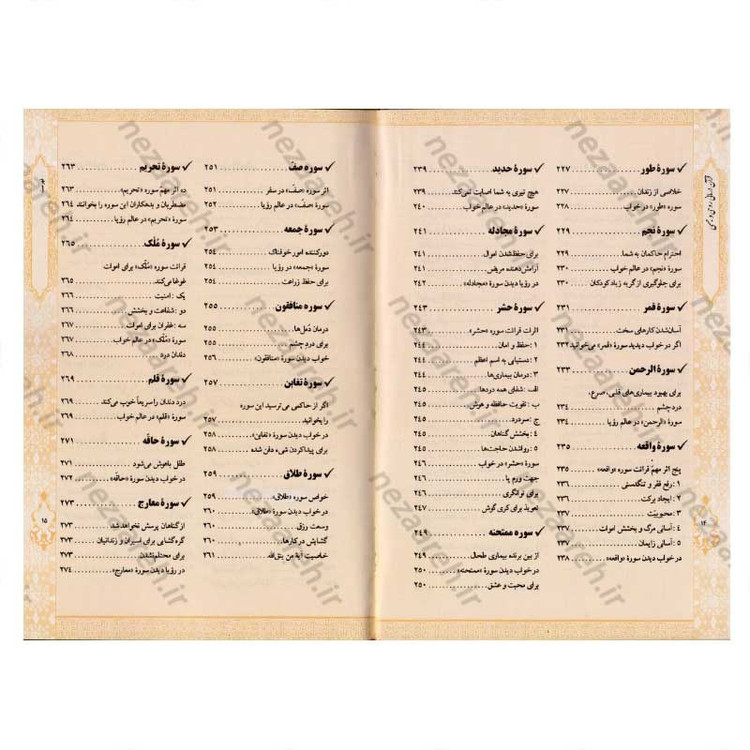 ✓ سورهٔ طور ........ ۲۲۷
خلاصی از زندان ........ ۲۲۷
سوره «طور» در خواب ........ ۲۲۸
✓ سورهٔ نجم ........ ۲۲۹
احترام حاکمان به شما ........ ۲۲۹
سورهٔ «نجم» در عالم خواب ........ ۲۳۰
برای جلوگیری از گریه زیاد کودکان ۲۳۰
✓ سورهٔ قمر ........ ۲۳۱
آسان‌شدن کارهای سخت ........ ۲۳۱
اگر در خواب دیدید «قمر» می‌خوانید ۲۳۲
✓ سورهٔ الرحمن ........ ۲۳۳
برای بهبود بیماری‌های قلبی، صرع،
درد چشم ........ ۲۳۴
سورهٔ «الرحمن» در عالم رؤیا ........ ۲۳۴
✓ سورهٔ واقعه ........ ۲۳۵
پنج اثر مهمّ قرائت سوره «واقعه» ۲۳۵
۱ : رفع فقر و تنگدستی ........ ۲۳۶
۲ : ایجاد برکت ........ ۲۳۶
۳ : محبوبیّت ........ ۲۳۷
۴ : آسانی مرگ و بخشش اموات ۲۳۷
۵ : آسانی زایمان ........ ۲۳۷
در خواب دیدن سورهٔ «واقعه» ........ ۲۳۸
✓ سورهٔ حدید ........ ۲۳۹
هیچ تیری به شما اصابت نمی‌کند ۲۳۹
سورهٔ «حدید» در عالم خواب ........ ۲۴۰
✓ سورهٔ مجادله ........ ۲۴۱
برای حفظ‌شدن اموال ........ ۲۴۱
آرامش‌دهنده مریض ........ ۲۴۱
در رؤیا دیدن سورهٔ «مجادله» ........ ۲۴۲
✓ سورهٔ حشر ........ ۲۴۳
اثرات قرائت سوره «حشر» ........ ۲۴۳
۱ : حفظ و امان ........ ۲۴۴
۲ : دستیابی به اسم اعظم ........ ۲۴۴
۳ : درمان بیماری‌ها ........ ۲۴۴
الف : شفای همه دردها ........ ۲۴۵
ب : تقویت حافظه و هوش ........ ۲۴۵
ج : سردرد ........ ۲۴۵
۴ : بخشش گناهان ........ ۲۴۵
۵ : رواشدن حاجت‌ها ........ ۲۴۵
سورهٔ «حشر» در خواب ........ ۲۴۶
جهت ورم پا ........ ۲۴۶
برای توانگری ........ ۲۴۶
تعویذ برای کری گوش ........ ۲۴۷
✓ سوره ممتحنه ........ ۲۴۹
از بین برنده بیماری طحال ........ ۲۴۹
در خواب دیدن سورهٔ «ممتحنه» ۲۵۰
برای محبت و عشق ........ ۲۵۰
۱۴
✓ سوره صفّ ........ ۲۵۱
اثر سوره «صفّ» در سفر ........ ۲۵۱
سورهٔ «صفّ» در عالم رؤیا ........ ۲۵۲
✓ سورهٔ جمعه ........ ۲۵۳
دورکننده امور خوفناک ........ ۲۵۴
سورهٔ «جمعه» در رؤیا ........ ۲۵۴
برای حفظ زراعت ........ ۲۵۴
✓ سوره منافقون ........ ۲۵۵
درمان دُمل‌ها ........ ۲۵۵
برای درد چشم ........ ۲۵۵
خواب دیدن سورهٔ «منافقون» ........ ۲۵۶
✓ سورهٔ تغابن ........ ۲۵۷
اگر از حاکمی می ترسید این سوره
را بخوانید ........ ۲۵۷
در خواب دیدن سورهٔ «تغابن» ........ ۲۵۸
برای پیداکردن شیء دفن شده ........ ۲۵۸
✓ سورهٔ طلاق ........ ۲۵۹
خواص سوره «طلاق» ........ ۲۵۹
در خواب دیدن سورهٔ «طلاق» ........ ۲۶۰
وسعت رزق ........ ۲۶۰
گشایش در کارها ........ ۲۶۰
خاصیت آیهٔ من یتق‌الله ........ ۲۶۱
✓ سورهٔ تحریم ........ ۲۶۳
ده اثر مهمّ سوره «تحریم» ........ ۲۶۳
مضطربان و بدهکاران این سوره را بخوانند ۲۶۴
سورهٔ «تحریم» در عالم رؤیا ........ ۲۶۴
✓ سورهٔ مُلک ........ ۲۶۵
قرائت سوره «مُلک» برای اموات
غوغا می‌کند ........ ۲۶۵
یک : امنیت ........ ۲۶۶
دو : شفاعت و بخشش ........ ۲۶۶
سه : غفران برای اموات ........ ۲۶۷
سورهٔ «مُلک» در عالم خواب ........ ۲۶۷
دندان درد ........ ۲۶۸
✓ سورهٔ قلم ........ ۲۶۹
درد دندان را سریعاً خوب می‌کند ........ ۲۶۹
سورهٔ «قلم» در عالم خواب ........ ۲۶۹
✓ سورهٔ حاقّه ........ ۲۷۱
طفل باهوش می‌شود ........ ۲۷۱
در خواب دیدن سورهٔ «حاقّه» ........ ۲۷۲
✓ سورهٔ معارج ........ ۲۷۳
از گناهان پرسش نخواهد شد ........ ۲۷۳
گره‌گشایی برای اسیران و زندانیان ۲۷۳
برای محتلم‌نشدن ........ ۲۷۳
در رؤیا دیدن سورهٔ «معارج» ........ ۲۷۴
۱۵
nezaareh.ir